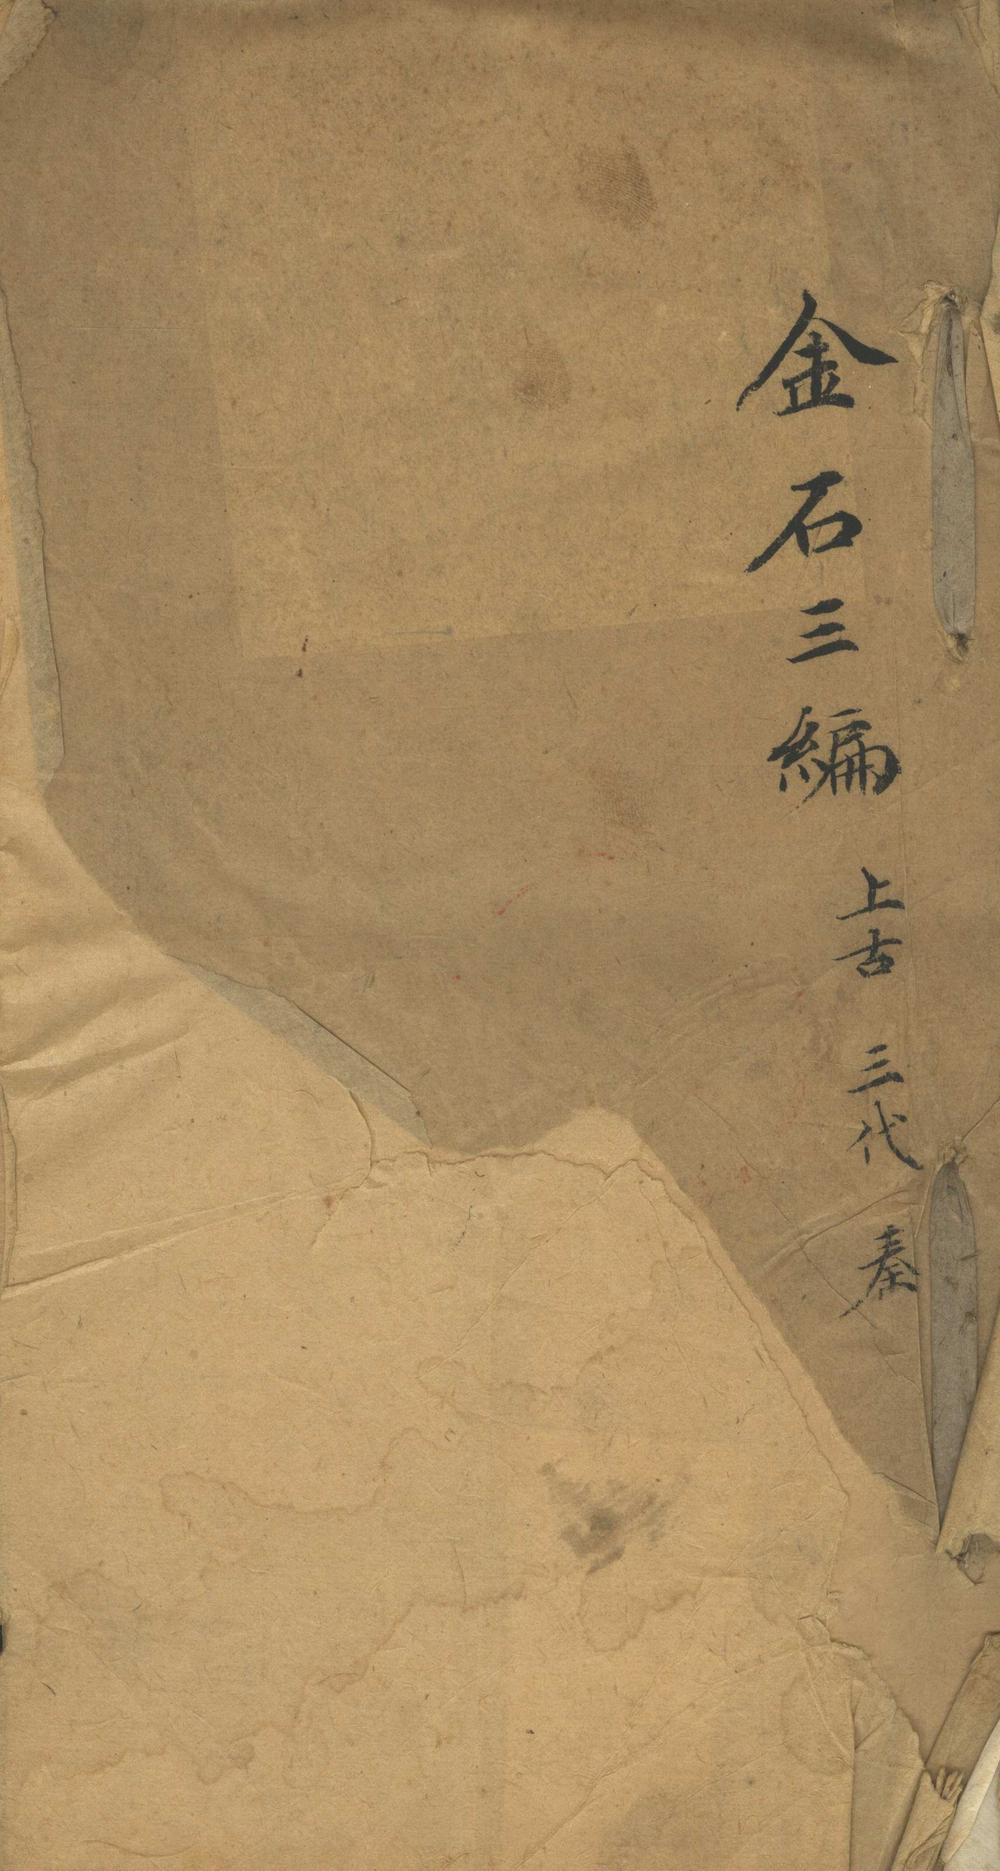 金石三編 上古 三代 秦